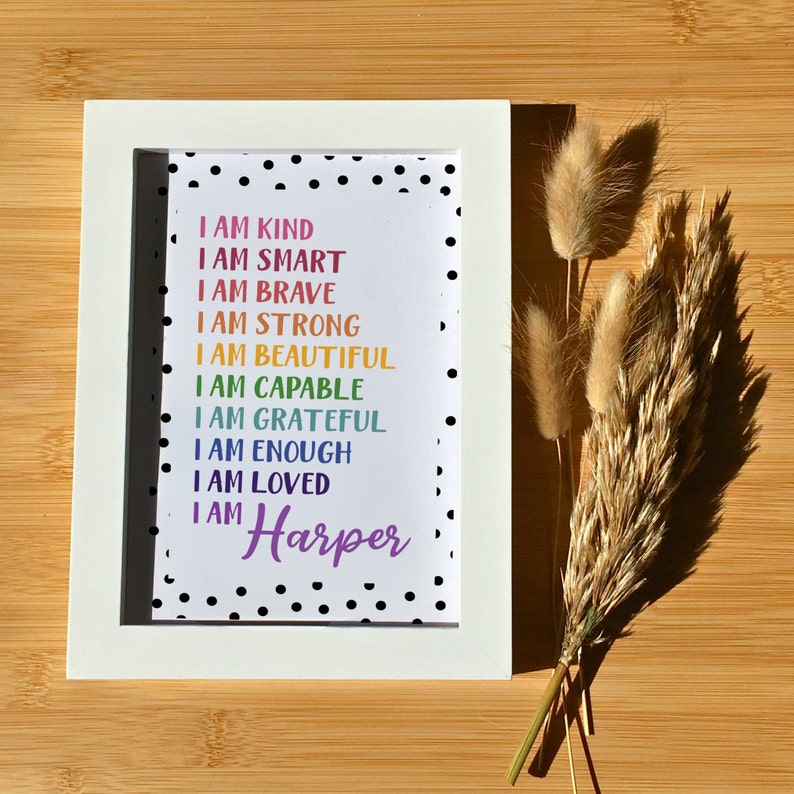 I AM KIND
I AM SMART
I AM BRAVE
I AM STRONG
I AM BEAUTIFUL
I AM CAPABLE
I AM GRATEFUL
I AM ENOUGH
I AM LOVED
I AM Harper